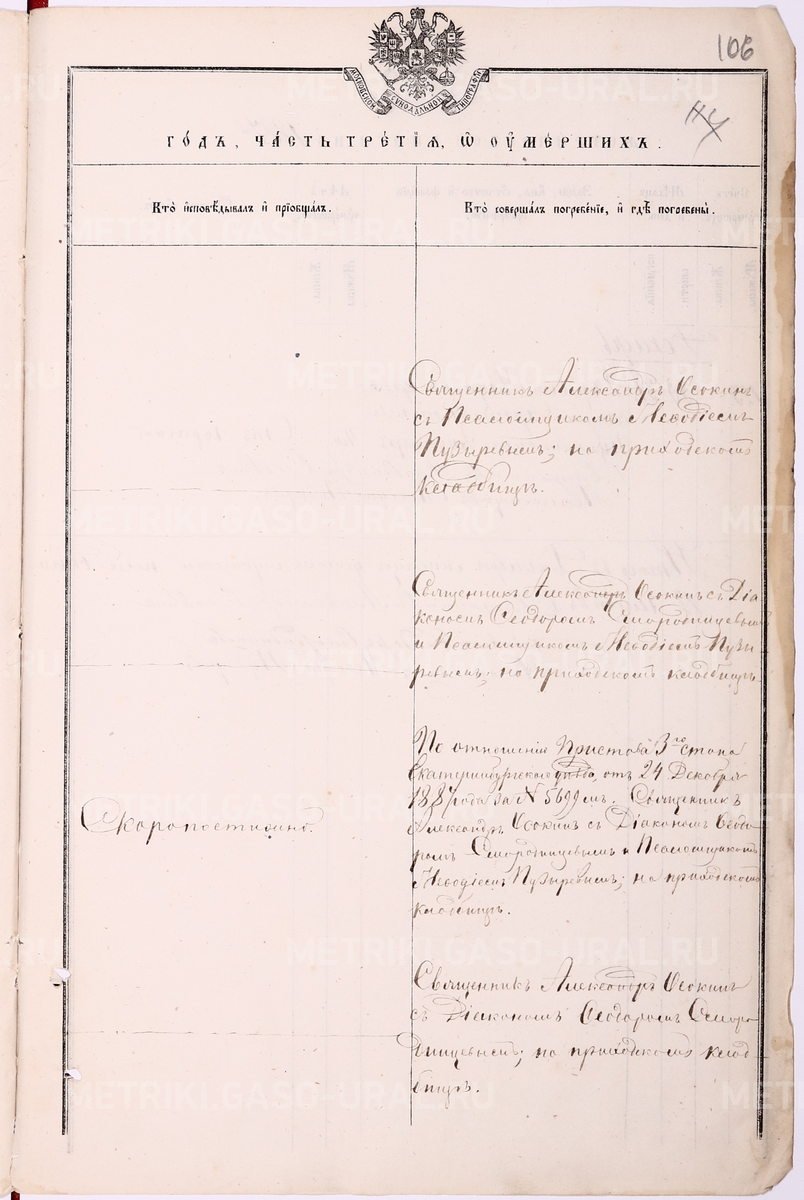 106
МОСКОВСКОЙ СѴНОДАЛЬНОЙ ТИПОГРАФІИ
го́дъ, ча́сть тре́тїѧ, ѡ҆ ᲂу҆ме́ршихъ.
Кто̀ и҆сповѣ́дывалъ и҆ прїѻбща́лъ.
Кто̀ соверша́лъ погребе́нїе, и҆ гдѣ̀ погребены̀.
Священникъ Александръ Осокинъ
съ Псаломщикомъ Меѳодіемъ
Пузыревымъ; на приходскомъ
кладбищѣ.
Священникъ Александръ Осокинъ съ Діа
кономъ Ѳеодоромъ Смородинцевымъ
и Псаломщикомъ Меѳодіемъ Пузы
ревымъ; на приходскомъ кладбищѣ.
По отношенію Пристава 3го стана
Екатеринбургскаго уѣзда, отъ 24 Декабря
1887 года за № 5699 мъ. Священникъ
Александръ Осокинъ съ Діакономъ Ѳеодо
ромъ Смородинцевымъ и Псаломщикомъ
Меѳодіемъ Пузыревымъ; на приходскомъ
кладбищѣ.
Скоропостижно.
Священникъ Александръ Осокинъ
съ Діакономъ Ѳеодоромъ Сморо
динцевымъ; на приходскомъ клад
бищѣ.
METRIKI.GASO-URAL.RU